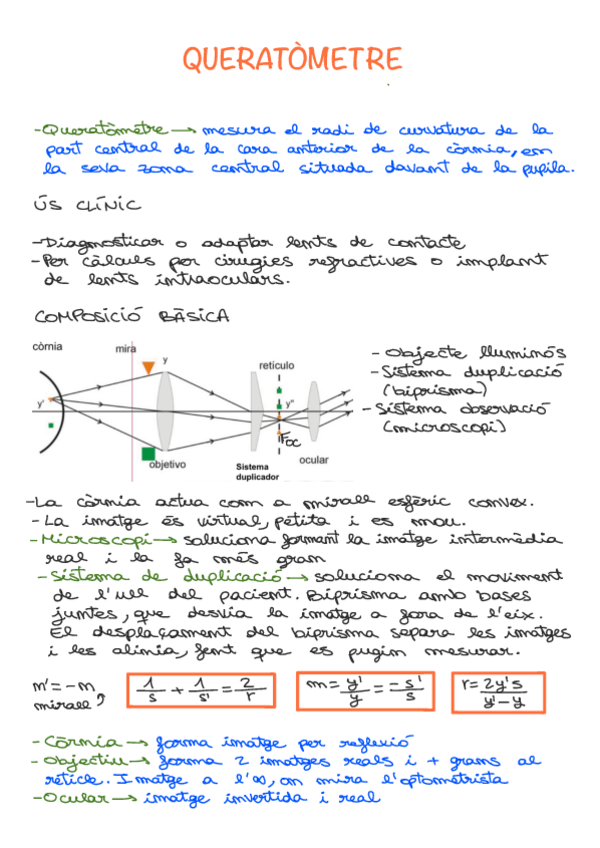 QUERATÒMETRE
-Queratòmetre → mesura el radi de curvatura de la
part central de la cara anterior de la còrnia, en
la seva zona central situada davant de la pupila.
ÚS CLÍNIC
-Diagnosticar o adaptar lents de contacte
-Per càlculs per cirugies refractives o implant
de lents intraoculars.
COMPOSICIÓ BÀSICA
còrnia
mira
y
retículo
y'
y''
Foc
objetivo
Sistema
duplicador
ocular
- Objecte lluminós
- Sistema duplicació
(biprisma)
- Sistema observació
(microscopi)
-La còrnia actua com a mirall esfèric convex.
- La imatge és virtual, petita i es mou.
- Microscopi → soluciona formant la imatge intermèdia
real i la fa més gran
- Sistema de duplicació → soluciona el moviment
de l'ull del pacient. Biprisma amb bases
juntes, que desvia la imatge a fora de l'eix.
El desplaçament del biprisma separa les imatges
i les alinia, fent que es pugin mesurar.
m' = - m
mirall
1/s + 1/s' = 2/r
m = y'/y = -s'/s
r = 2y's/y'-y
- Còrnia → forma imatge per reflexió
- Objectiu → forma 2 imatges reals i + grans al
reticle. Imatge a l'∞, on mira l'optometrista
-Ocular → imatge invertida i real